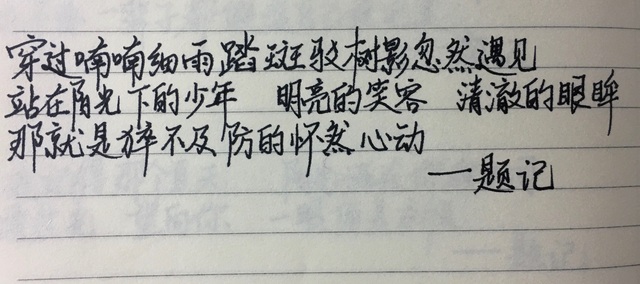 穿过喃喃细雨踏斑驳树影忽然遇见
站在角光下的少年 明亮的笑容 清澈的眼眸
那就是猝不及防的怀然心动
——题记